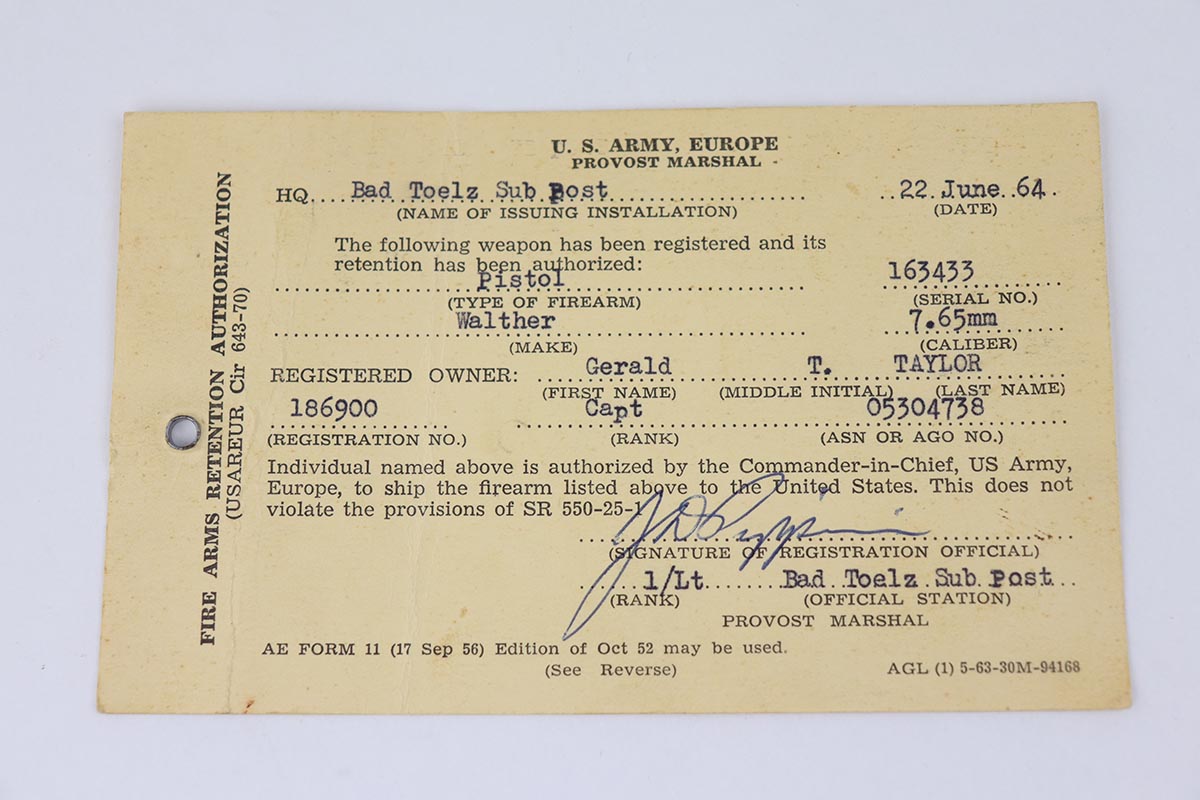 U. S. ARMY, EUROPE
PROVOST MARSHAL
HQ. Bad Toelz Sub Post 22 June 64
(NAME OF ISSUING INSTALLATION) (DATE)
The following weapon has been registered and its
retention has been authorized:
Pistol 163433
(TYPE OF FIREARM) (SERIAL NO.)
Walther 7.65mm
(MAKE) (CALIBER)
REGISTERED OWNER: Gerald T. TAYLOR
(FIRST NAME) (MIDDLE INITIAL) (LAST NAME)
186900 Capt 05304738
(REGISTRATION NO.) (RANK) (ASN OR AGO NO.)
Individual named above is authorized by the Commander-in-Chief, US Army,
Europe, to ship the firearm listed above to the United States. This does not
violate the provisions of SR 550-25-1
(SIGNATURE OF REGISTRATION OFFICIAL)
1/Lt Bad Toelz Sub Post
(RANK) (OFFICIAL STATION)
PROVOST MARSHAL
AE FORM 11 (17 Sep 56) Edition of Oct 52 may be used.
(See Reverse) AGL (1) 5-63-30M-94168
FIRE ARMS RETENTION AUTHORIZATION
(USAREUR Cir 643-70)